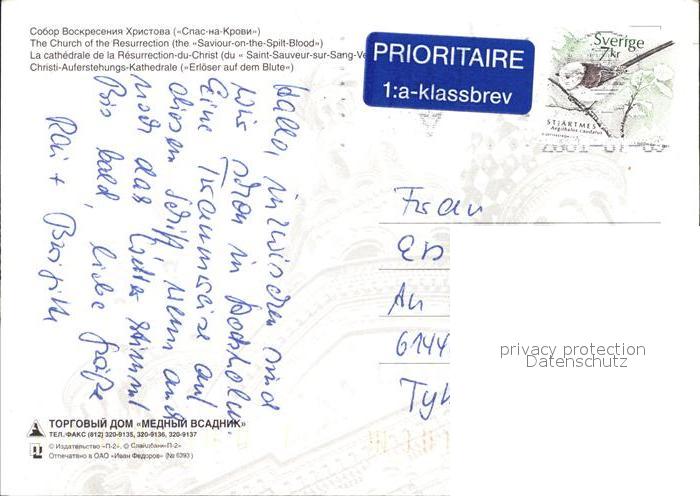 Собор Воскресения Христова («Спас-на-Крови»)
The Church of the Resurrection (the «Saviour-on-the-Spilt-Blood»)
La cathédrale de la Résurrection-du-Christ (du « Saint-Sauveur-sur-Sang-Ve
Christi-Auferstehungs-Kathedrale («Erlöser auf dem Blute»)
PRIORITAIRE
1:a-klassbrev
Sverige
7 kr
STJÄRTMES
Aegithalos caudatus
Hallo, inzwischen sind
wir schon in Stockholm.
Eine Traumreise auf
diesem Schiff, wenn auch
noch das Wetter stimmt
Bis bald, liebe Grüße
Rai + Brigitte
Frau
An
6144
privacy protection
Datenschutz
ТОРГОВЫЙ ДОМ «МЕДНЫЙ ВСАДНИК»
ТЕЛ.ФАКС (812) 320-9135, 320-9136, 320-9137
© Издательство «П-2», © Слайдбанк«П-2»
Отпечатано в ОАО «Иван Федоров» (№ 6393)